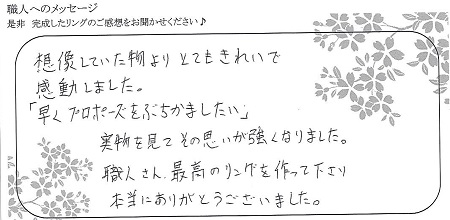 職人へのメッセージ
是非 完成したリングのご感想をお聞かせください♪
想像していた物よりとてもきれいで
感動しました。
「早くプロポーズをぶちかましたい」
実物を見てその思いが強くなりました。
職人さん、最高のリングを作って下さり
本当にありがとうございました。